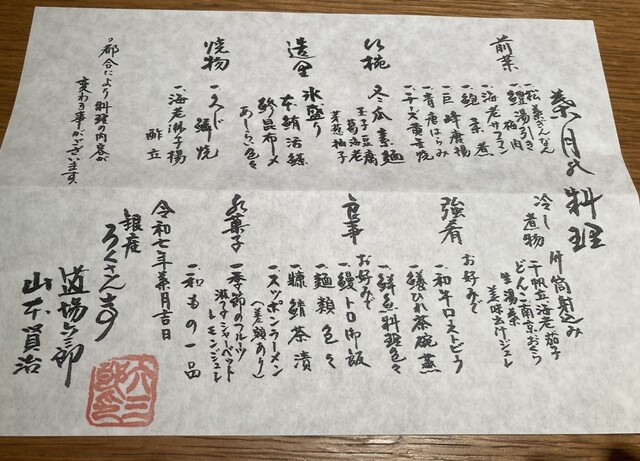 葉月の料理
前菜
一、鱧湯引き
梅肉
一、海老サフラン
一、鮑柔煮
一、巨峰唐揚
一、青唐はらみ
一、チーズ黄金焼
吸椀
冬瓜素麺
玉子豆腐
葛海老
芽葱柚子
造里
氷盛り
本鮪活〆
鯵昆布〆
あしらい色々
焼物
一、スズキ焼
一、海老湯葉揚
酢立
・都合により料理の内容が
変わる事がございます。
冷し煮物
竹筒射込み
干帆立海老茄子
どんこ南京おくら
生湯葉
美味出汁ジュレ
強肴
お好みで
一、和牛ロストビフ
一、鱶ひれ茶碗蒸
一、鮮魚料理色々
食事
お好みで
一、鰻トロ御飯
一、麺類色々
一、鯖茶漬
一、スッポンラーメン
(差額あり)
水菓子
一、季節のフルーツ
シャーベット
レモンジュレ
一、和もの一品
令和七年葉月吉日
銀座
ろくさん亭
道場六三郎
山本賢治